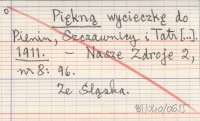 Piękną wycieczkę do
Pienin, Szczawnicy i Tatr [...].
1911. - Nasze Zdroje 2,
nr 8: 96.
Ze Śląska.